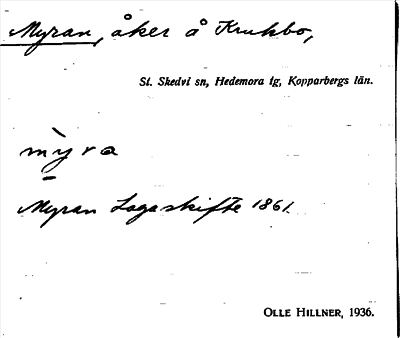 Myran, åker å Krukbo,
St. Skedvi sn, Hedemora tg, Kopparbergs län.
mỳra
Myran Lagaskifte 1861.
OLLE HILLNER, 1936.